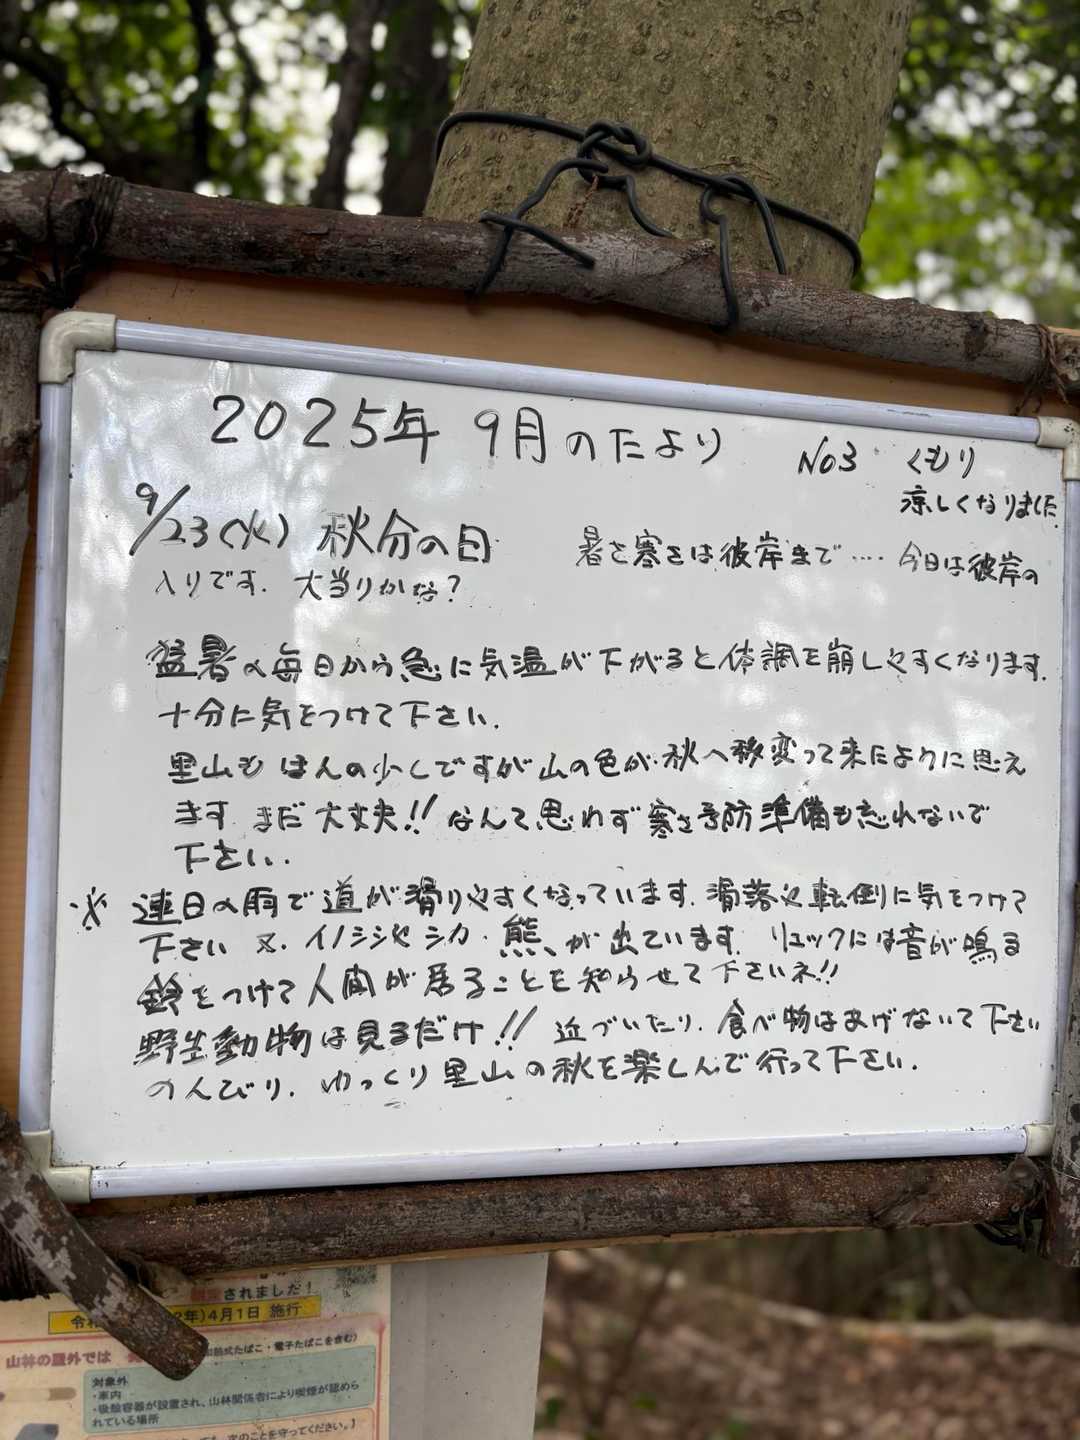 2025年 9月のたより No3 くもり
涼しくなりました
9/23(火) 秋分の日 暑さ寒さは彼岸まで‥‥ 今日は彼岸の
入りです. 大当りかな?
猛暑の毎日から急に気温が下がると体調を崩しやすくなります.
十分に気をつけて下さい.
里山も ほんの少しですが山の色が秋へ移変って来たように思え
ます まだ大丈夫!! なんて思わず寒さ予防準備も忘れないで
下さい.
※ 連日の雨で道が滑りやすくなっています. 滑落や転倒に気をつけて
下さい 又、イノシシやシカ・熊、が出ています. リュックには音が鳴る
鈴をつけて人間が居ることを知らせて下さいネ!!
野生動物は見るだけ!! 近づいたり、食べ物はあげないで下さい
のんびり、ゆっくり里山の秋を楽しんで行って下さい.
されました!
年)4月1日 施行
山林の屋外では
式たばこ・電子たばこを含む)
対象外
・車内
・吸殻容器が設置され、山林関係者により喫煙が認めら
れている場所
次のことを守ってください。】